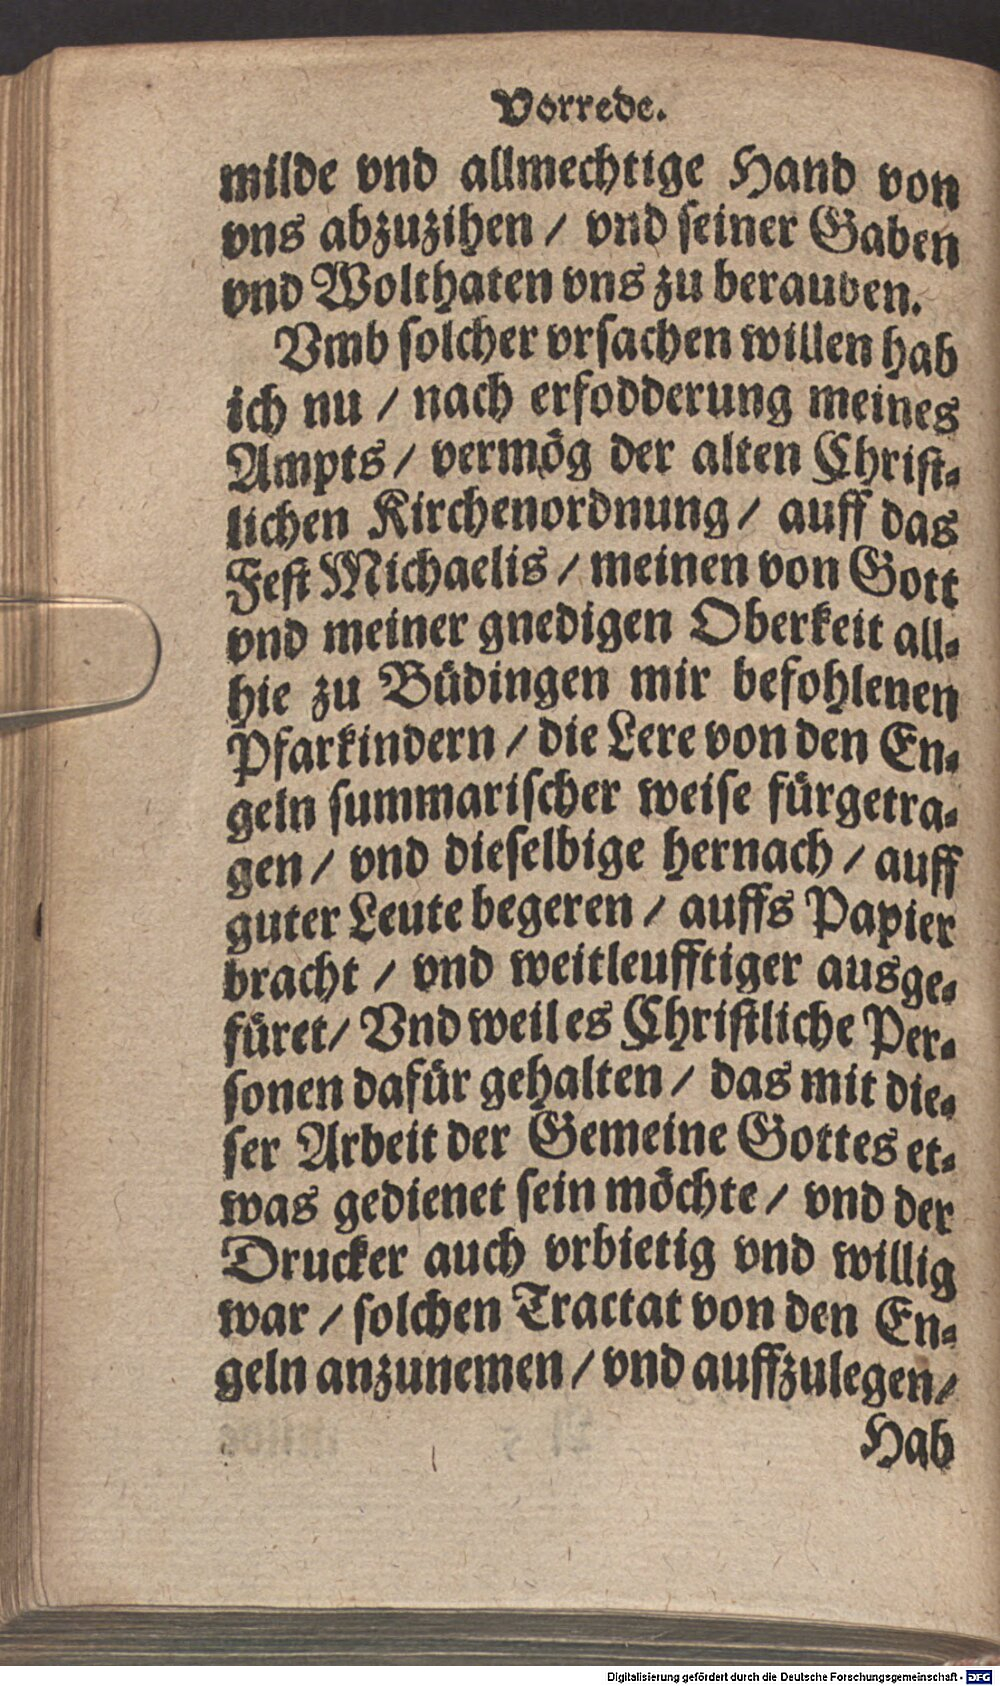 Vorrede.
milde vnd allmechtige Hand von
vns abzuzihen / vnd seiner Gaben
vnd Wolthaten vns zu berauben.
Vmb solcher vrsachen willen hab
ich nu / nach erfodderung meines
Ampts / vermög der alten Christ-
lichen Kirchenordnung / auff das
Fest Michaelis / meinen von Gott
vnd meiner gnedigen Oberkeit all-
hie zu Büdingen mir befohlenen
Pfarkindern / die Lere von den En-
geln summarischer weise fürgetra-
gen / vnd dieselbige hernach / auff
guter Leute begeren / auffs Papier
bracht / vnd weitleufftiger ausge-
füret / Vnd weil es Christliche Per-
sonen dafür gehalten / das mit die-
ser Arbeit der Gemeine Gottes et-
was gedienet sein möchte / vnd der
Drucker auch vrbietig vnd willig
war / solchen Tractat von den En-
geln anzunemen / vnd auffzulegen /
Hab
Digitalisierung gefördert durch die Deutsche Forschungsgemeinschaft - DFG